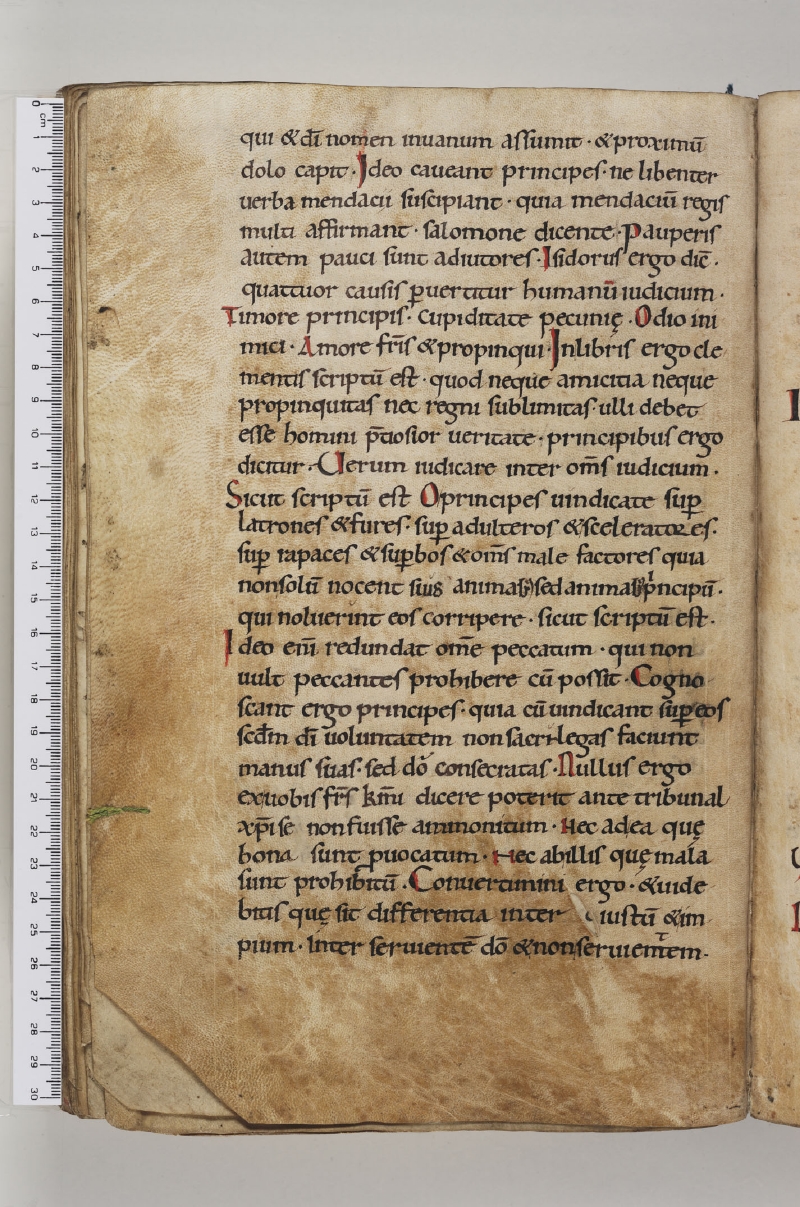 qui &dī nomen inuanum assumit · &proximū
dolo capit · Ideo caueant principes · ne libenter
uerba mendacii suscipiant · quia mendaciū regis
multi affirmant · salomone dicente · Pauperis
autem pauci sunt adiutores · Isidorus ergo dic̄ ·
quattuor causis ꝑuertitur humanū iudicium ·
Timore principis · cupiditate pecunię · Odio ini
mici · Amore fr̄is &propinqui · Inlibris ergo cle
mentis scriptū est · quod neque amicitia neque
propinquitas nec regni sublimitas · ulli debet
esse homini p̄tiosior ueritate · principibus ergo
dicitur · Uerum iudicare inter om̄s iudicium ·
Sicut scriptū est O principes uindicate suꝑ
latrones &fures · suꝑ adulteros &sceleratores ·
suꝑ rapaces &suꝑbos &om̄s male factores quia
nonsolū nocent suis animab; sed animab; pⁱncipū ·
qui noluerint eos corripere · sicut scriptū est ·
Ideo eni̅ redundat om̄e peccatum · qui non
uult peccantes prohibere cū possit · Cogno
scant ergo principes · quia cū uindicant suꝑ eos
scd̄m dī uoluntatem non sacrilegas faciunt
manus suas · sed dō consecratas · Nullus ergo
exuobis fr̄s km̄i dicere poterit ante tribunal
xp̄i se non fuisse ammonitum · Nec adea quę
bona sunt ꝓuocatum · Nec abillis quę mala
sunt prohibitū · Conuertimini ergo · &uide
bitis quę sit differentia inter iustū &im
pium · Inter seruientē dō &nonseruientem ·
0 cm 1 2 3 4 5 6 7 8 9 10 11 12 13 14 15 16 17 18 19 20 21 22 23 24 25 26 27 28 29 30